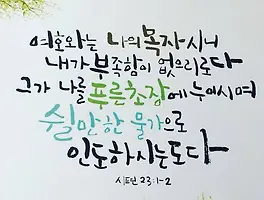 여호와는 나의 목자시니
내가 부족함이 없으리로다
그가 나를 푸른초장에 누이시며
쉴만한 물가으로
인도하시는도다
시편 23:1-2